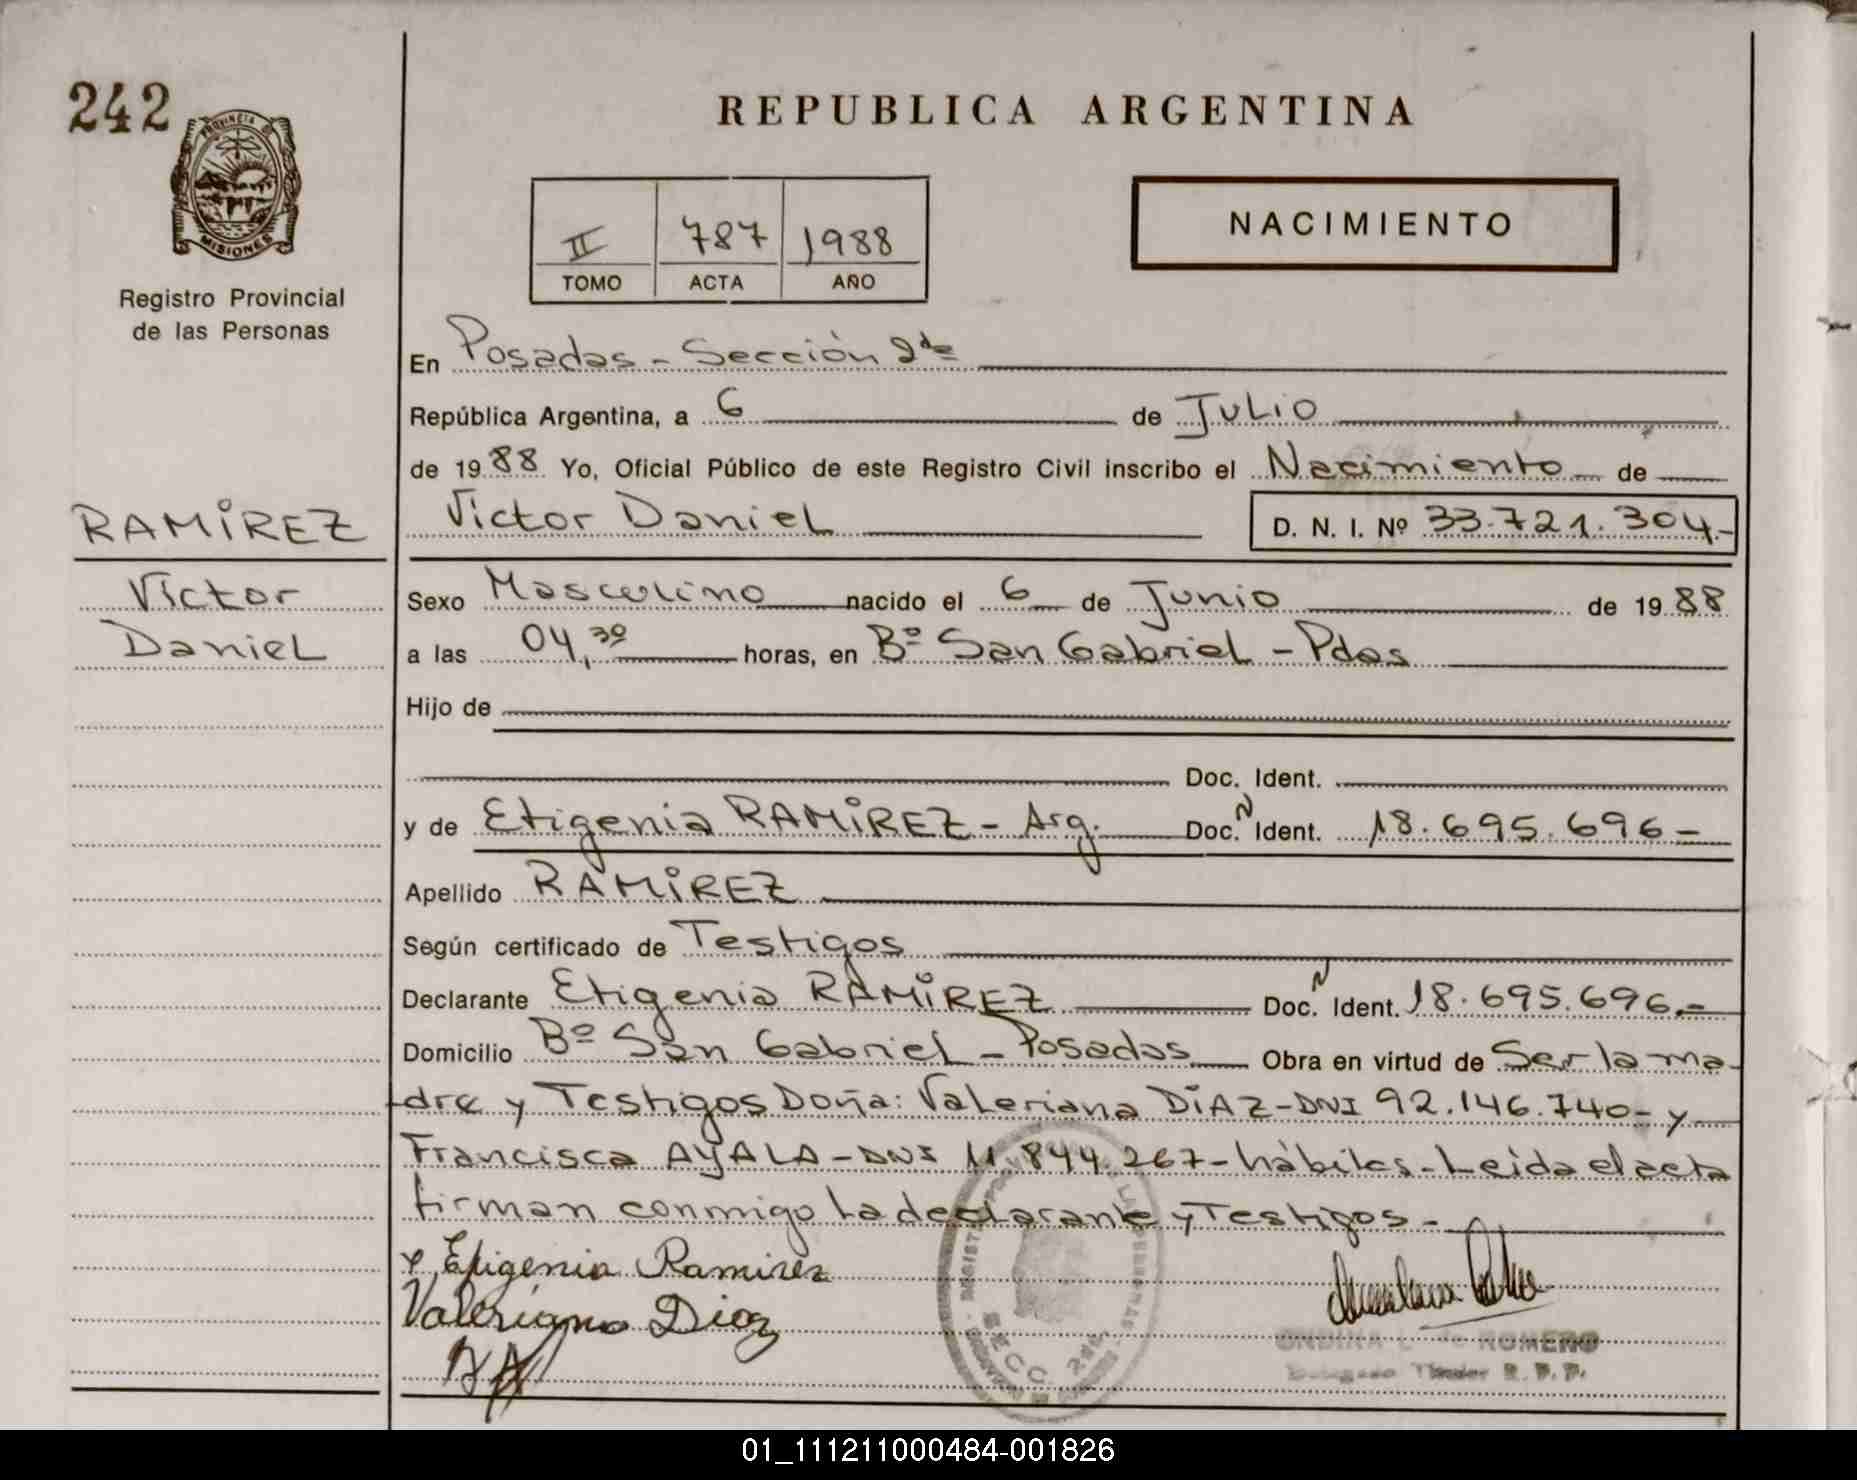 242
PROVINCIA DE
MISIONES
Registro Provincial
de las Personas
REPUBLICA ARGENTINA
II 787 1988
TOMO ACTA AÑO
NACIMIENTO
En Posadas - Sección 2da
República Argentina, a 6 de Julio
de 1988 Yo, Oficial Público de este Registro Civil inscribo el Nacimiento de
RAMIREZ
Victor Daniel D. N. I. Nº 33.721.304.-
Victor
Daniel
Sexo Masculino nacido el 6 de Junio de 1988
a las 04,30 horas, en Bº San Gabriel - Pdas
Hijo de
Doc. Ident.
y de Efigenia RAMIREZ - Arg. Doc. N Ident. 18.695.696-
Apellido RAMIREZ
Según certificado de Testigos
Declarante Efigenia RAMIREZ Doc. N Ident. 18.695.696.-
Domicilio Bº San Gabriel - Posadas Obra en virtud de Ser la ma-
dre y Testigos Doña: Valeriana DIAZ-DNI 92.146.740- y
Francisca AYALA - DNI 11.844.267- hábiles - Leida el acta
firman conmigo la declarante y Testigos -
Efigenia Ramirez
Valeriana Diaz
SECC. 2da.
ROMERO
Titular R. P. P.
01_111211000484-001826